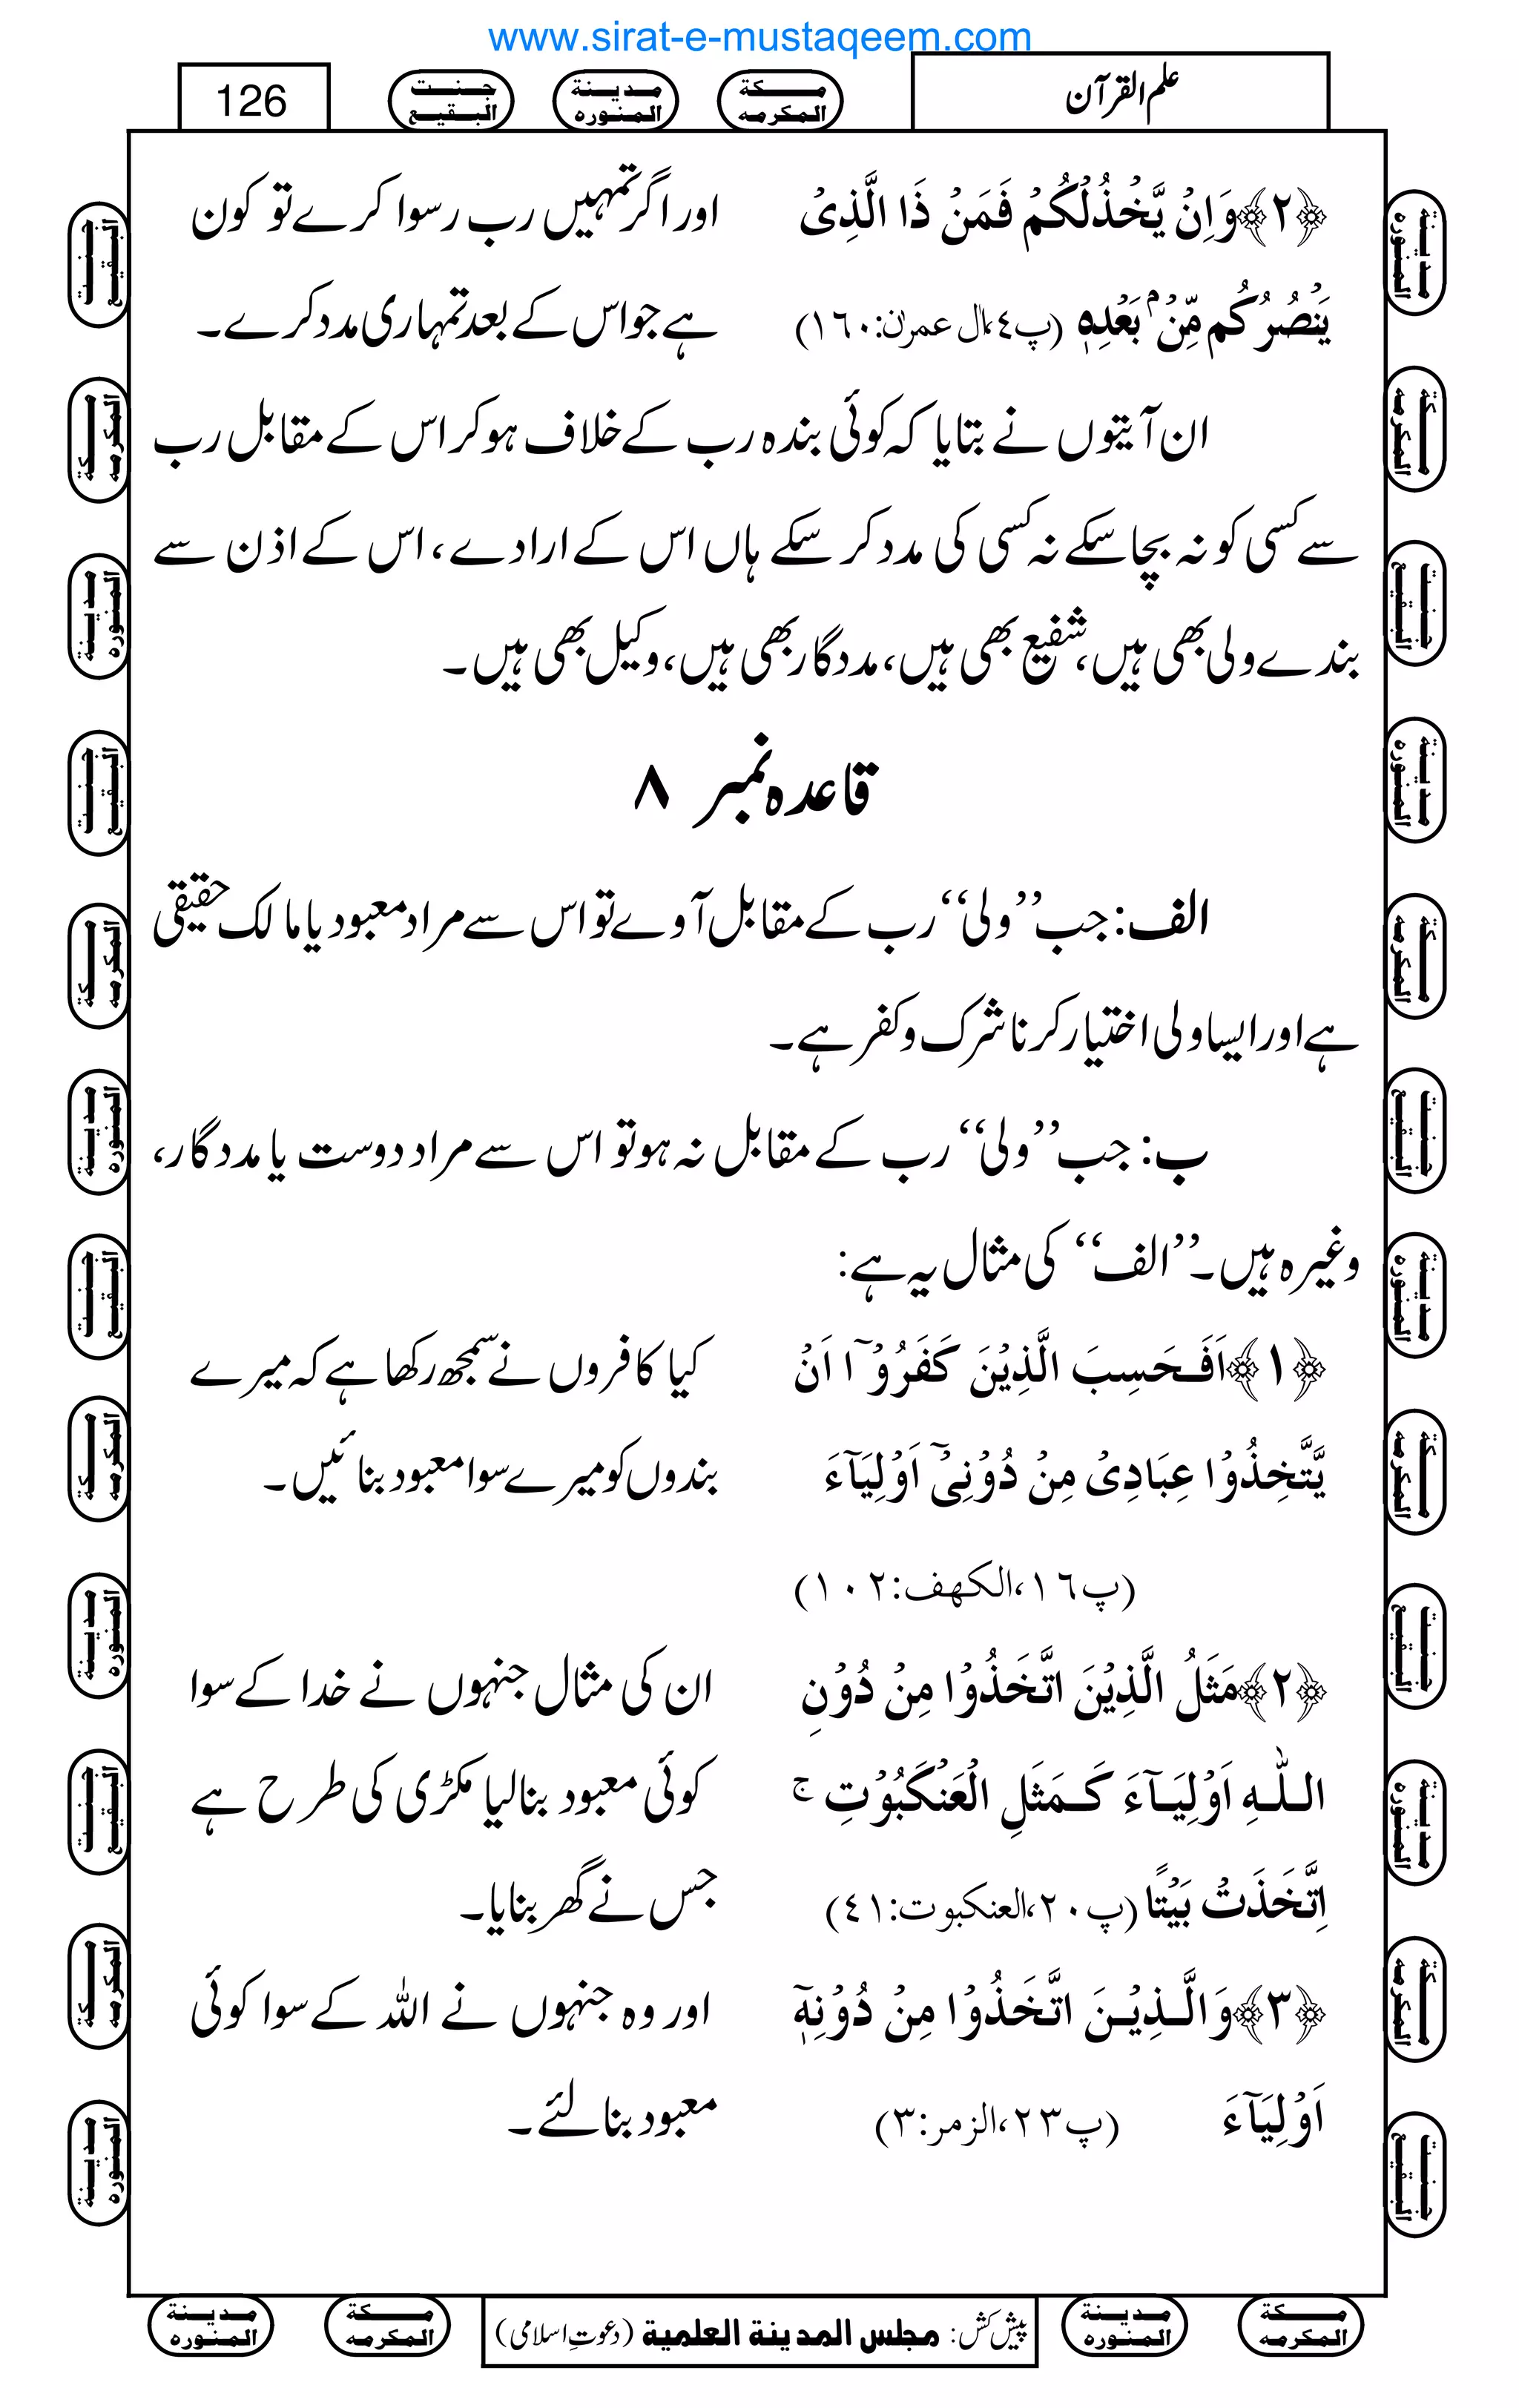 www.sirat-e-mustaqeem.com
علم القرآن
مکة المکرمه
مدینة المنوره
جنت البقیع
126
﴿۲﴾ وَاِنْ یَّخْذُلْکُمْ فَمَنْ ذَا الَّذِیْ اور اگر تمہیں رب رسوا کرے تو کون
یَنْصُرُکُم مِّنْۢ بَعْدِہٖ (پ٤،اٰل عمرٰن:١٦٠) ہے جو اس کے بعد تمہاری مدد کرے۔
ان آیتوں نے بتایا کہ کوئی بندہ رب کے خلاف ہو کر اس کے مقابل رب
سے کسی کو نہ بچا سکے نہ کسی کی مدد کر سکے ہاں اس کے ارادے، اس کے اذن سے
بندے ولی بھی ہیں، شفیع بھی ہیں، مددگار بھی ہیں، وکیل بھی ہیں۔
قاعدہ نمبر ۸
الف: جب ’’ولی‘‘ رب کے مقابل آوے تو اس سے مراد معبود یا مالک حقیقی
ہے اور ایسا ولی اختیار کرنا شرک و کفر ہے۔
ب: جب ’’ولی‘‘ رب کے مقابل نہ ہو تو اس سے مراد دوست یا مددگار،
وغیرہ ہیں۔ ’’الف‘‘ کی مثال یہ ہے:
﴿۱﴾ اَفَحَسِبَ الَّذِیْنَ کَفَرُوْۤا اَنْ کیا کافروں نے سمجھ رکھا ہے کہ میرے
یَّتَّخِذُوْا عِبَادِیْ مِنْ دُوْنِیْۤ اَوْلِیَآءَ بندوں کو میرے سوا معبود بنائیں۔
(پ١٦،الکہف:١٠٢)
﴿۲﴾ مَثَلُ الَّذِیْنَ اتَّخَذُوْا مِنْ دُوْنِ ان کی مثال جنہوں نے خدا کے سوا
اللّٰہِ اَوْلِیَآءَ کَمَثَلِ الْعَنْکَبُوْتِ ۚ کوئی معبود بنالیا مکڑی کی طرح ہے
اِتَّخَذَتْ بَیْتًا (پ٢٠،العنکبوت:٤١) جس نے گھر بنایا۔
﴿۳﴾ وَالَّذِیْنَ اتَّخَذُوْا مِنْ دُوْنِہٖۤ اور وہ جنہوں نے اللہ کے سوا کوئی
اَوْلِیَآءَ (پ٢٣،الزمر:٣) معبود بنالئے۔
پیش کش: مجلس المدینة العلمیة (دعوتِ اسلامی)